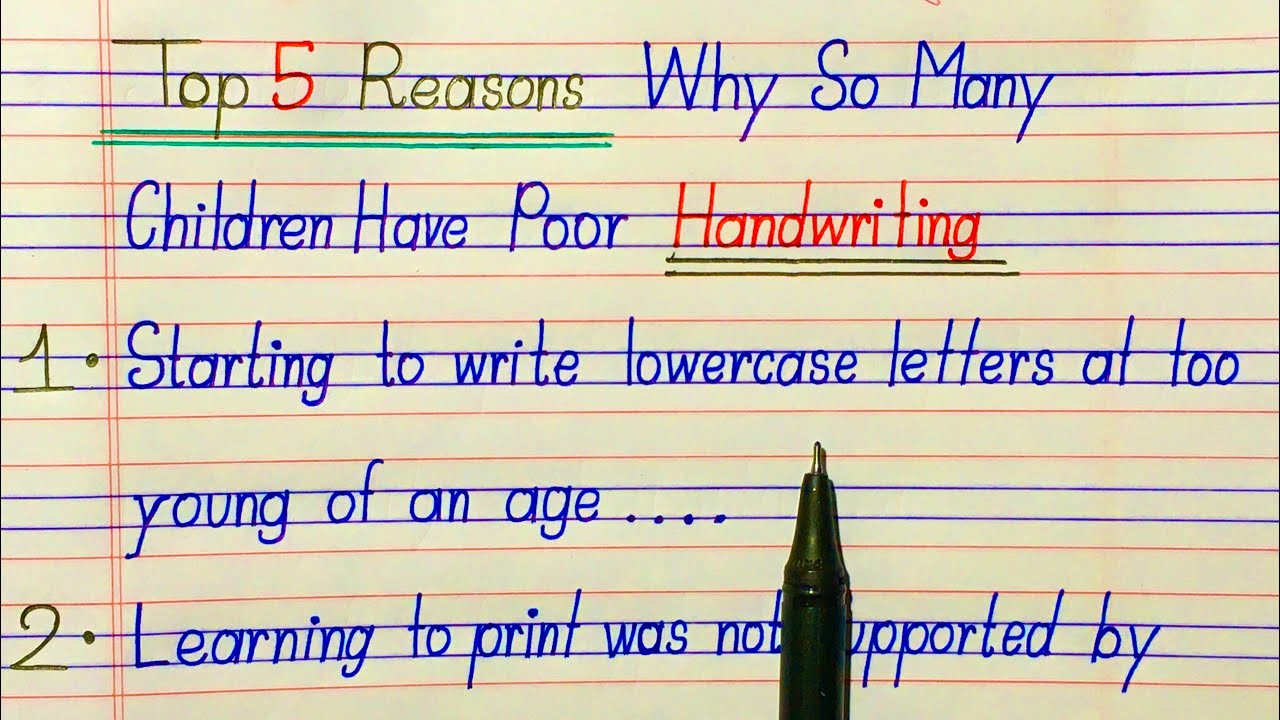 Top 5 Reasons Why So Many
Children Have Poor Handwriting
1. Starting to write lowercase letters at too
young of an age ....
2. Learning to print was not supported by